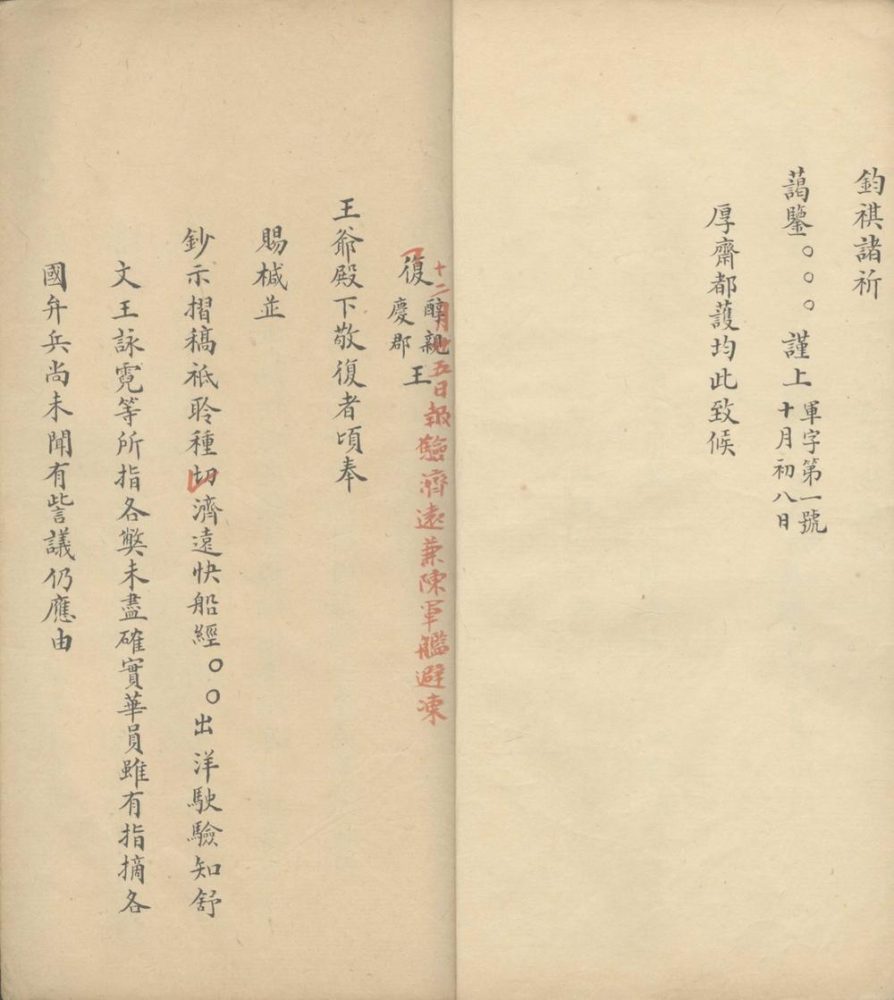 鈞祺諸祈
藹鑒○○○謹上 軍字第一號
十月初八日
厚齋都護均此致候
十二月廿五日報驗濟遠兼陳軍艦避凍
復醇親慶郡王
王爺殿下敬復者頃奉
賜椷並
鈔示摺稿祗聆種切濟遠快船經○○出洋駛驗知舒
文王詠霓等所指各獘未盡確實華員雖有指摘各
國弁兵尚未聞有訾議仍應由